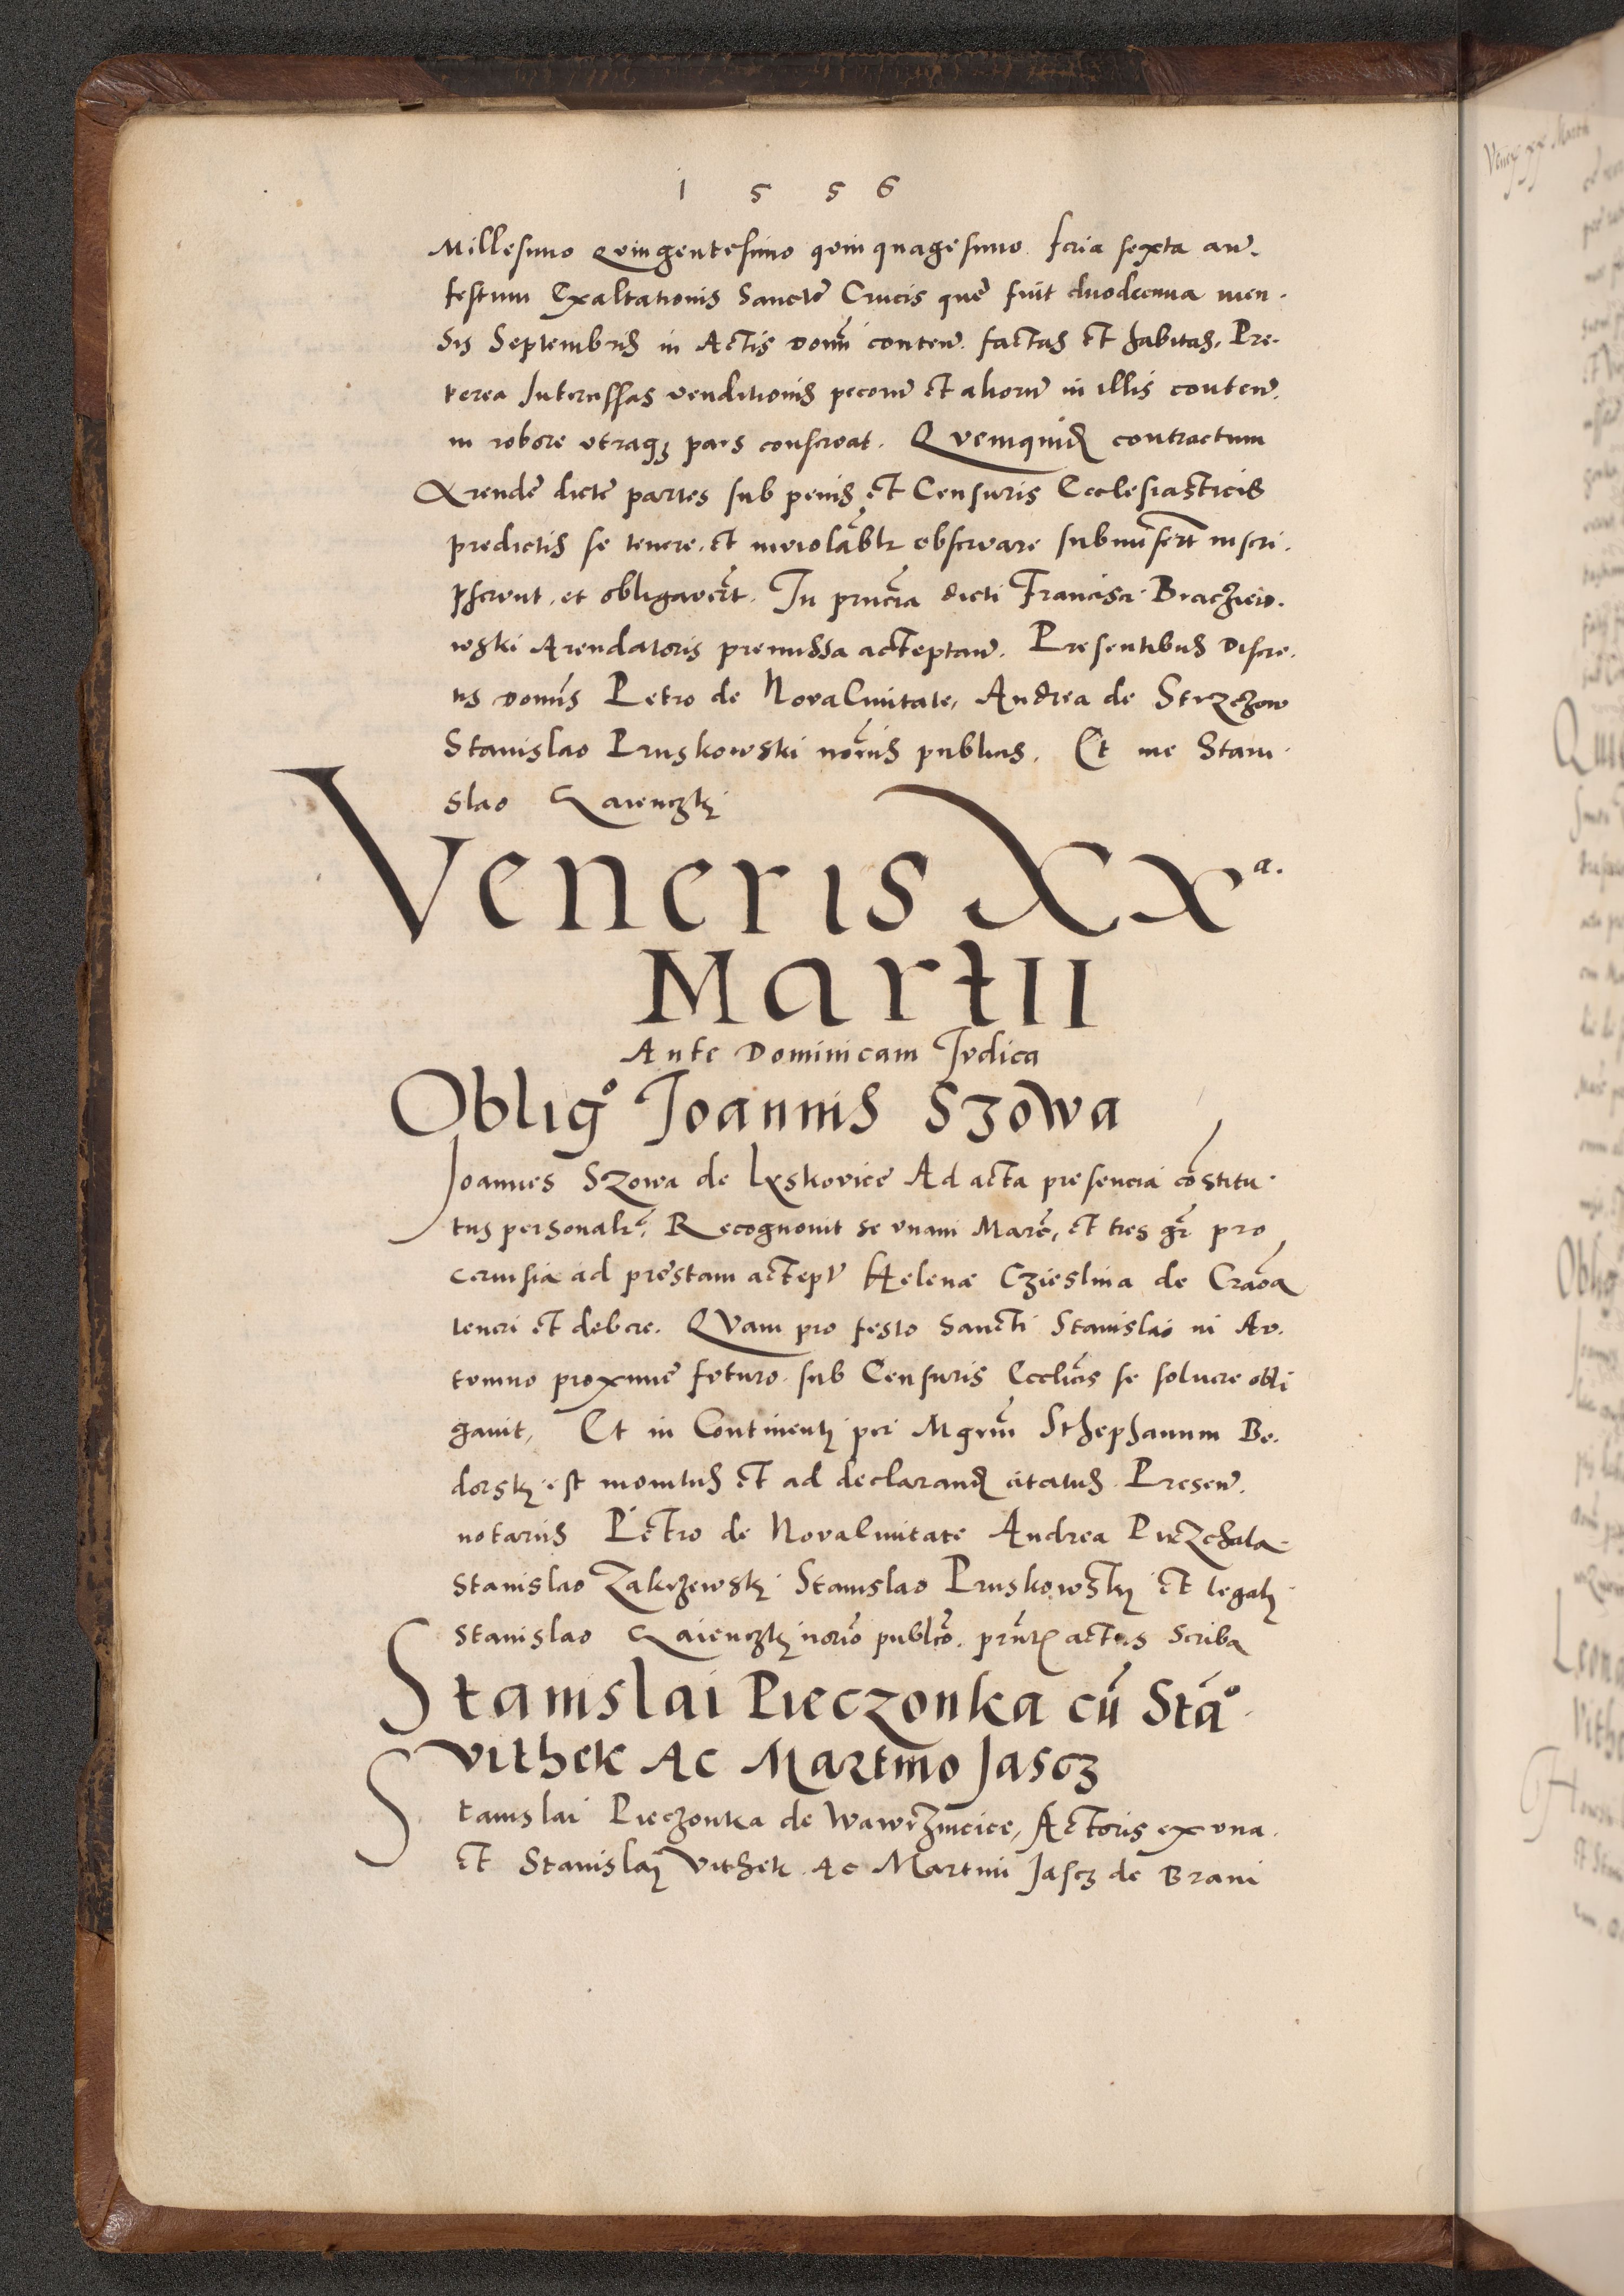 1 5 5 6
Millesimo Quingentesimo quinquagesimo. feria sexta an̄.
festum Exaltationis Sanctę Crucis quę fuit duodecima men.
sis Septembris in Actis domi conten̄. factas et habitas. Pre.
terea Intercissas venditionis pecorū et aliorū in illis conten̄.
in robore vtraqʒ pars conseruat. Quemquid contractum
Arendę dictę partes sub penis et Censuris Ecclesiasticis
predictis se tenere. et inuiolabłr obseruare submiserūt inscri.
pserunt. et obligauerūt. In pn̄cia dicti Francisci Brachiew.
wski Arendatoris premissa acceptan̄. Presentibus Discre.
tis domīs Petro de Noua Ciuitate, Andrea de Strzezow
Stanislao Pruskowski nōriis publicis. Et me Stani.
slao Gaienczkj
Veneris XXa.
Martii
Ante Dominicam Judica
Obligo Joannis Szowa
Joannes Szowa de Lyskovice Ad acta presencia cōstitu.
tus personalr̄. Recognouit se vnam Marc̄, et tres gr̄ pro
ceruisia ad prestam accept̄ Helenæ Czieslina de Crac̄a
teneri et debere. Quam pro festo Sancti Stanislai in Au.
tumno proximę futuro. sub Censuris Ecclīcis se soluere obli
gauit, Et in Continentj per Mgr̄m Sthephanum Bo.
dorskj est monitus et ad declarand citatus. Presen̄.
notariis Petro de Noua Ciuitate Andrea Pierzchala.
Stanislao Zakrzewskj Stanislao Pruskowskj et legalj
Stanislao Gaienczkj nōrio publco. pn̄tis actus Scriba
Stanislai Pieczonka cū Stāo.
Vithek Ac Martino Jascz
Stanislai Pieczonka de Wawrzincice, Actoris ex vna.
et Stanislaj Vithek Ac Martini Jascz de Brani
Veneris xx Martii